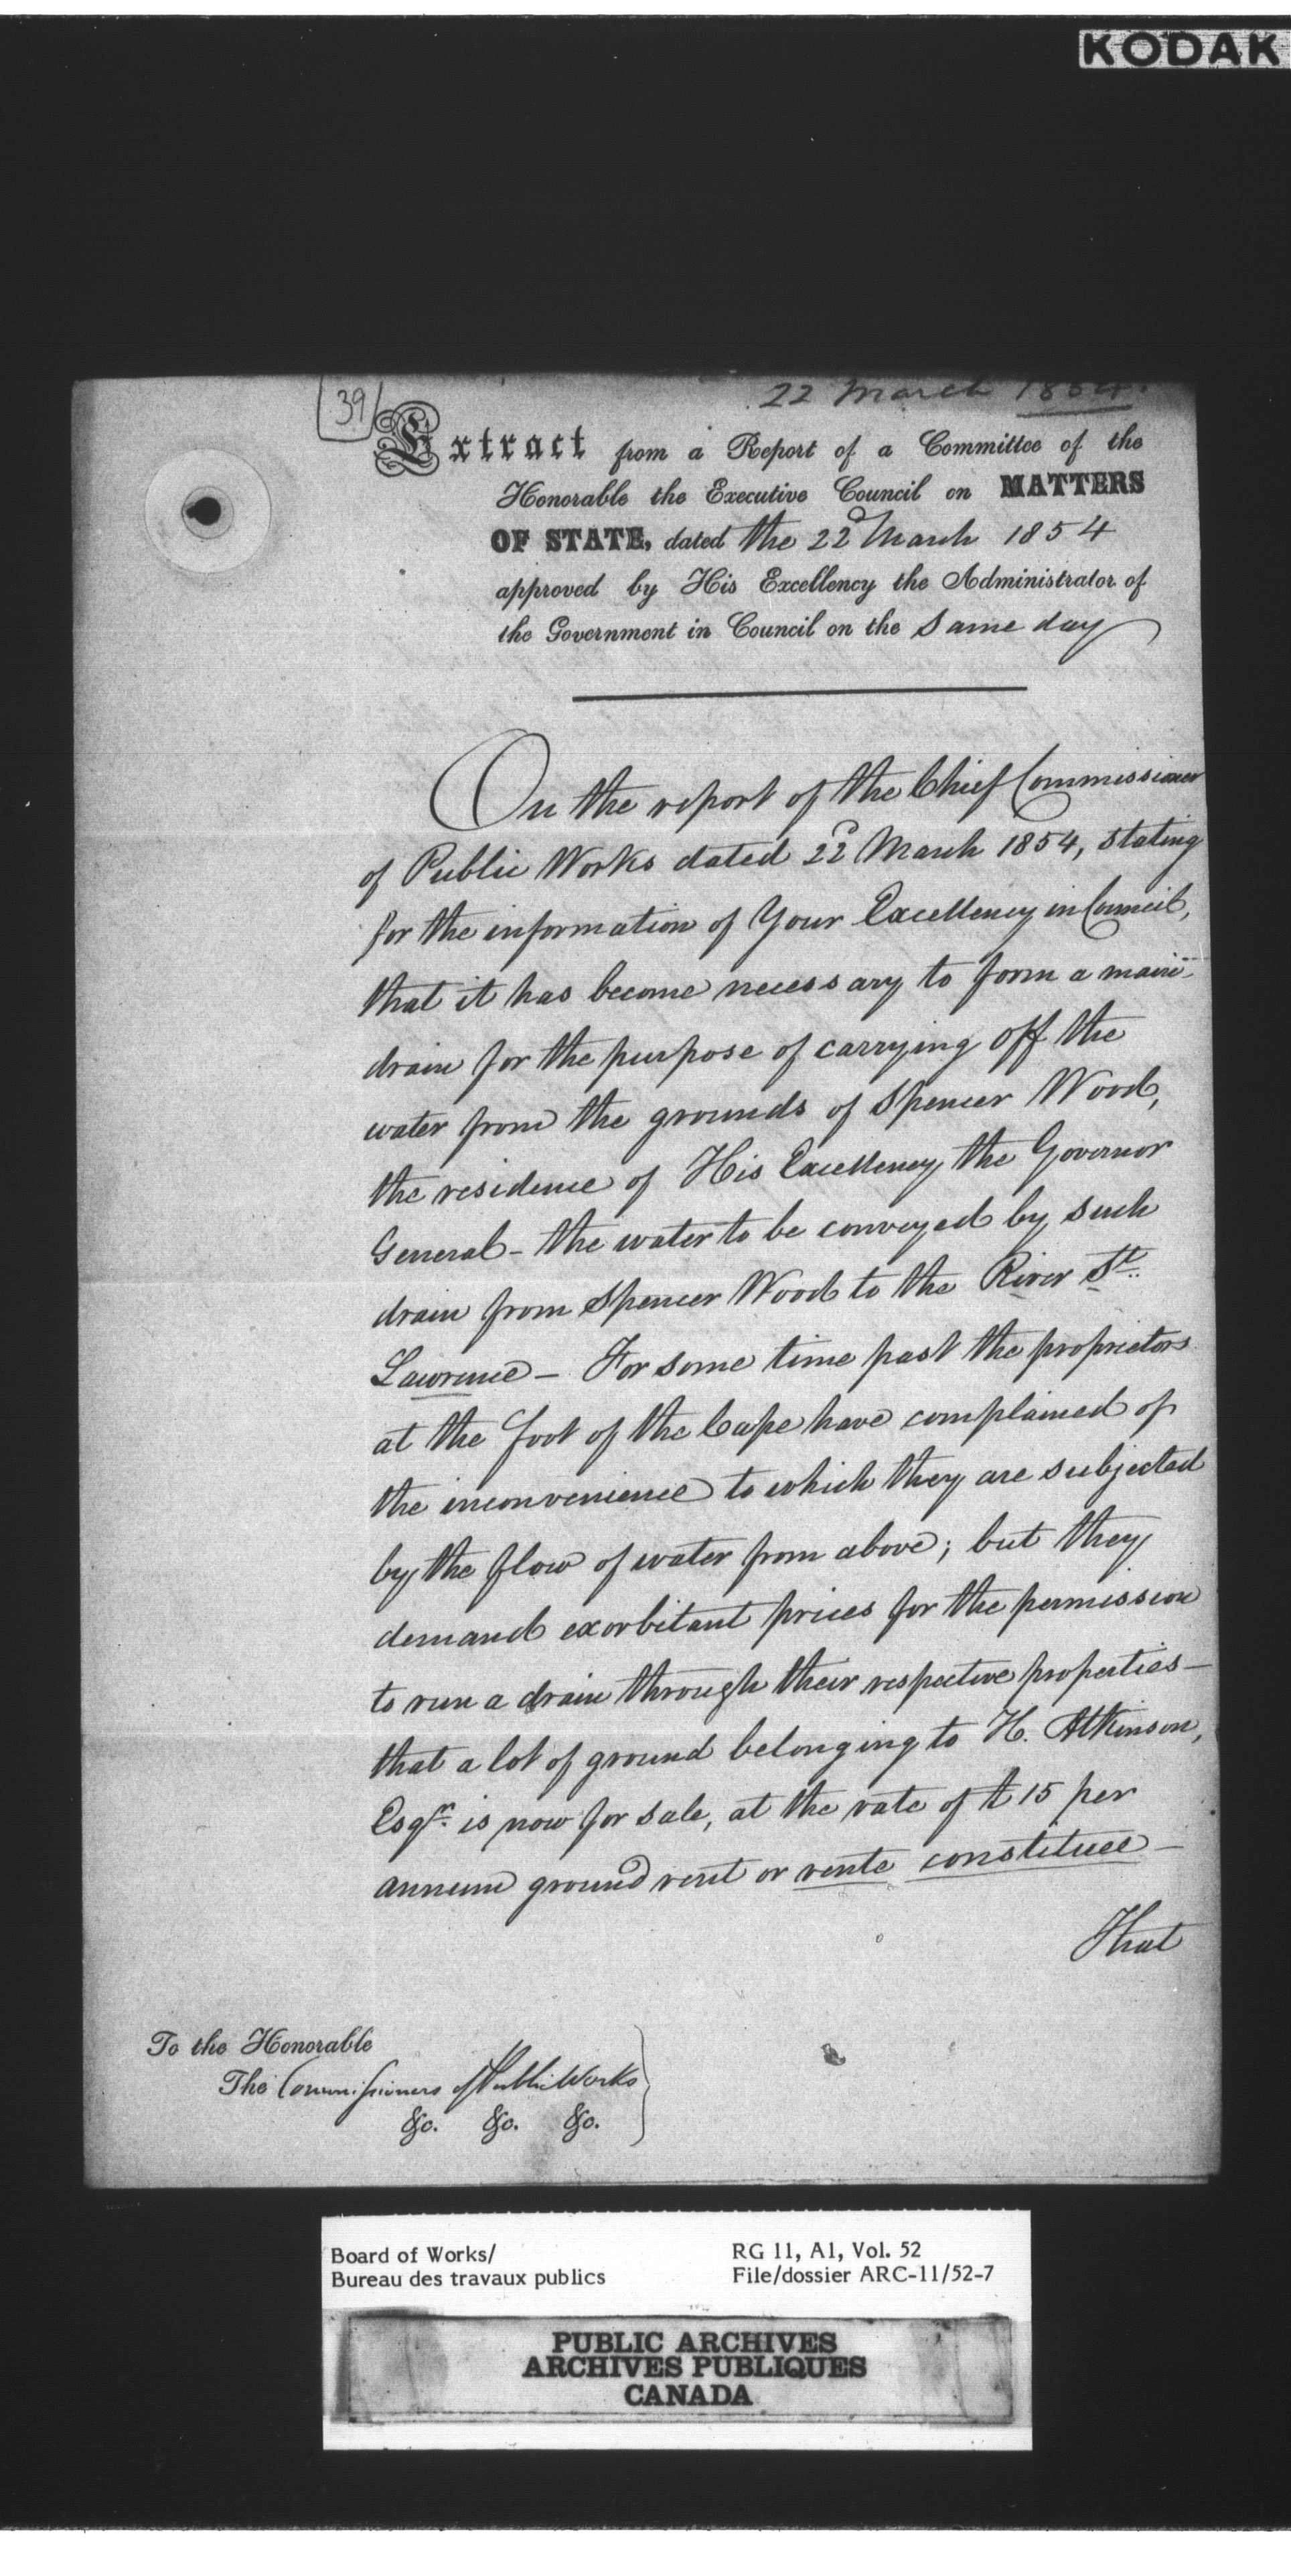 KODAK
39
22 March 1854.
Extract from a Report of a Committee of the
Honorable the Executive Council on MATTERS
OF STATE, dated the 22d March 1854
approved by His Excellency the Administrator of
the Government in Council on the same day
On the report of the Chief Commissioner
of Public Works dated 22d March 1854, stating
for the information of Your Excellency in Council,
that it has become necessary to form a main
drain for the purpose of carrying off the
water from the grounds of Spencer Wood,
the residence of His Excellency the Governor
General - the water to be conveyed by such
drain from Spencer Wood to the River St.
Lawrence - For some time past the proprietors
at the foot of the Cape have complained of
the inconvenience to which they are subjected
by the flow of water from above; but they
demand exorbitant prices for the permission
to run a drain through their respective properties -
that a lot of ground belonging to H. Atkinson,
Esqr. is now for sale, at the rate of £15 per
annum ground rent or rente constituee -
That
To the Honorable
The Commissioners of Public Works
&c. &c. &c.
Board of Works/ RG 11, A1, Vol. 52
Bureau des travaux publics File/dossier ARC-11/52-7
PUBLIC ARCHIVES
ARCHIVES PUBLIQUES
CANADA